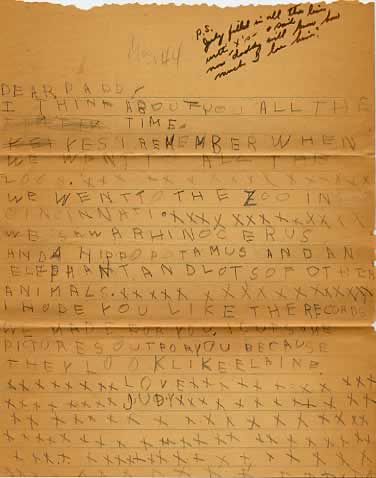 P.S.
Judy filled in all this line
with "x's" & said
now daddy will know how
much I love him!
DEAR DADD
I THINK ABOUT YOU ALL THE
TIME
YES I REMEMBER WHEN
WE WENT ALL THE
ZOOS. XXX XX XXXX XX XX X
WE WENT TO THE ZOO IN
CINCINNATI. XXXXX XXXXXXX X
WE SAW A RHINOCERUS
AND A HIPPOPOTAMUS AND AN
ELEPHANT AND LOTS OF OTHER
ANIMALS. XXXXX XXXXXXXXXX
I HOPE YOU LIKE THE RECORDS
WE MADE FOR YOU. I CUT SOME
PICTURES OUT FOR YOU BECAUSE
THEY LOOK LIKE ELAINE
XXXXXXXX LOVE XXXXXXX XXX
XXX XXXX JUDY XXXX XX XX XX
X X XX XX XX X X X X X X X XXX
XXXXX XXXX XX XXX XX XX X X
X XX X. XXXXXX XX XX X XX XXX
X X X X X X X X X X X X